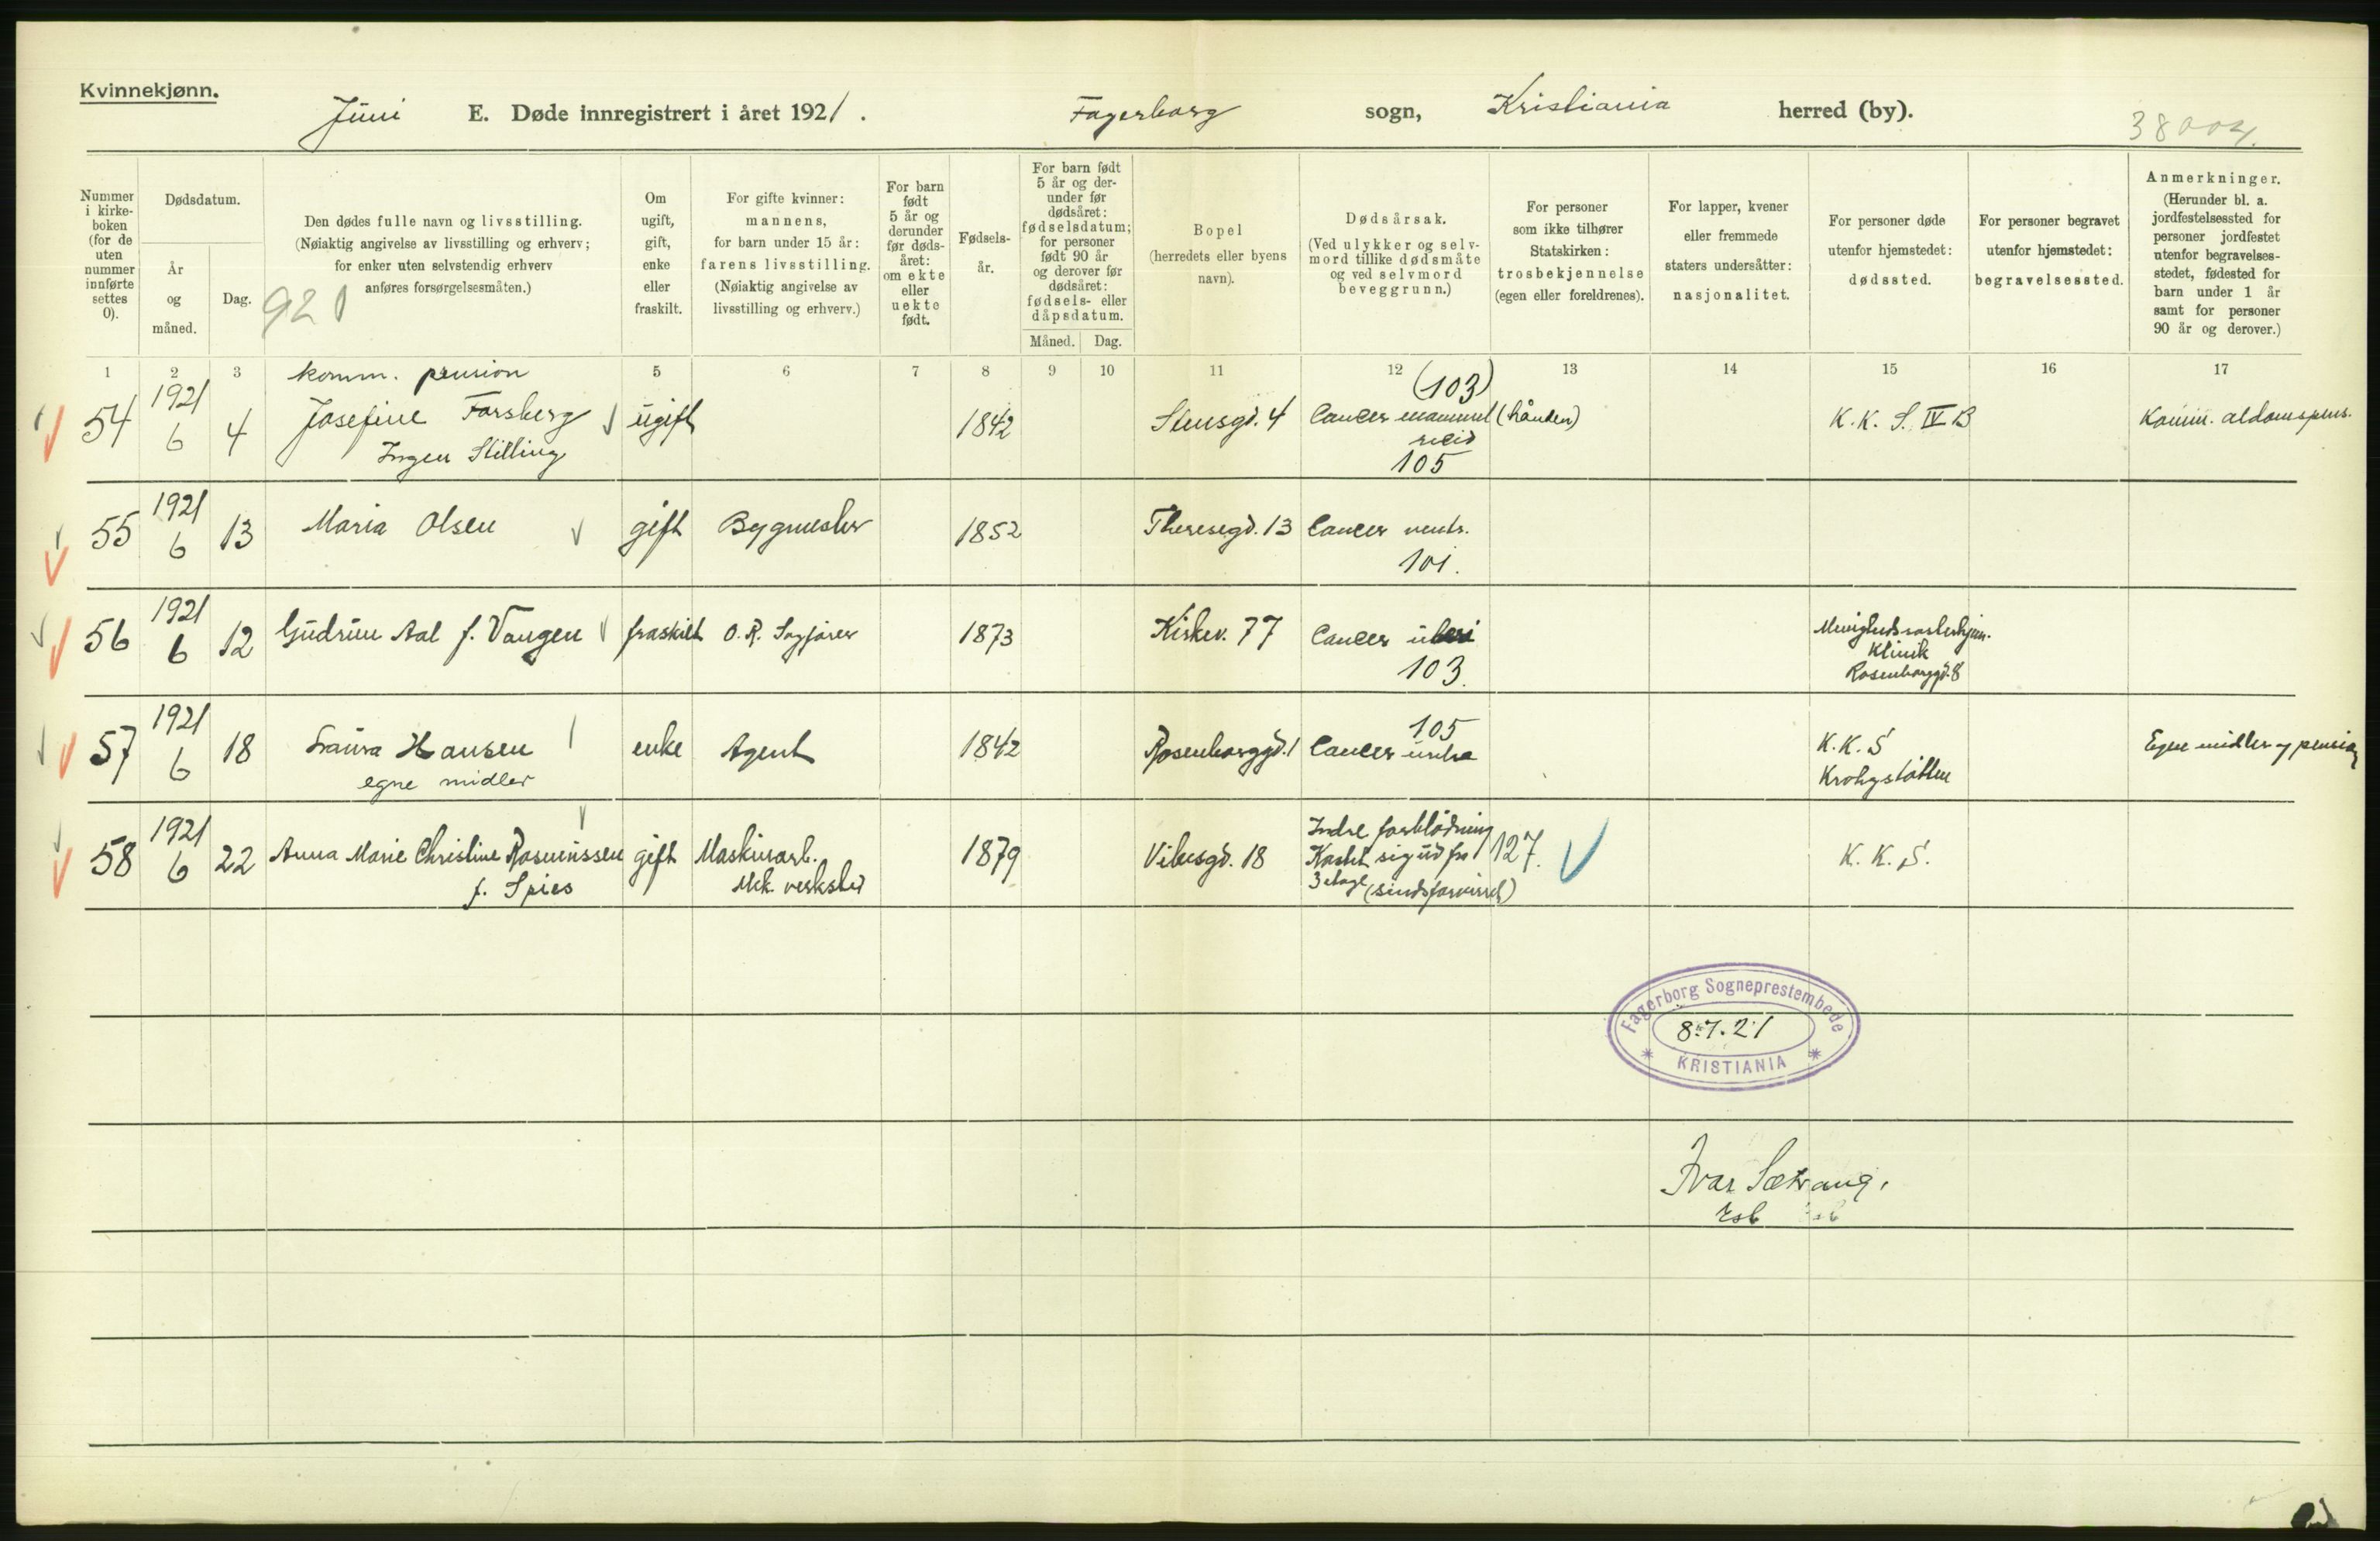 Kvinnekjønn.
Juni E. Døde innregistrert i året 1921. Fagerborg sogn, Kristiania herred (by).
38004.
Nummer i kirkeboken (for de uten nummer innførte settes 0).
Dødsdatum.
År og måned.
Dag.
Den dødes fulle navn og livsstilling.
(Nøiaktig angivelse av livsstilling og erhverv;
for enker uten selvstendig erhverv
anføres forsørgelsesmåten.)
921
Om ugift, gift, enke eller fraskilt.
For gifte kvinner:
mannens,
for barn under 15 år:
farens livsstilling.
(Nøiaktig angivelse av
livsstilling og erhverv.)
For barn født 5 år og derunder før dødsåret: om ekte eller uekte født.
Fødselsår.
For barn født 5 år og derunder før dødsåret: fødselsdatum; for personer født 90 år og derover før dødsåret: fødsels- eller dåpsdatum.
Måned. Dag.
Bopel
(herredets eller byens
navn).
Dødsårsak.
(Ved ulykker og selvmord tillike dødsmåte
og ved selvmord
beveggrunn.)
For personer
som ikke tilhører
Statskirken:
trosbekjennelse
(egen eller foreldrenes).
For lapper, kvener
eller fremmede
staters undersåtter:
nasjonalitet.
For personer døde
utenfor hjemstedet:
dødssted.
For personer begravet
utenfor hjemstedet:
begravelsessted.
Anmerkninger.
(Herunder bl. a.
jordfestelsessted for
personer jordfestet
utenfor begravelsesstedet, fødested for
barn under 1 år
samt for personer
90 år og derover.)
1 2 3 5 6 7 8 9 10 11 12 13 14 15 16 17
komm. pension (103)
54 1921 6 4 Josefine Forsberg ugift 1842 Stensgd. 4 Cancer (hånden) K.K.S. IV B Komm.
Ingen Stilling 105
55 1921 6 13 Maria Olsen gift Bygmester 1852 Theresegd. 13 Cancer ventr.
101.
56 1921 6 12 Gudrun Aal f. Vangen fraskilt O.R. Sagfører 1873 Kirkev. 77 Cancer uteri
103. Klinik
Rosenborggd. 8
105
57 1921 6 18 Laura Hansen enke Agent 1842 Rosenborggd. 1 Cancer K.K.S Egne midler og pension
egne midler Krohgstøtten
58 1921 6 22 Anna Marie Christine Rasmussen gift Maskinarb. 1879 Vibesgd. 18 Indre forblødning 127. K.K.S.
f. Spies Mek. verksted Kastet sig ud fra
3 etage (sindsforvirret)
Fagerborg Sogneprestembede
8-7.21
KRISTIANIA
Ivar Sætrang.